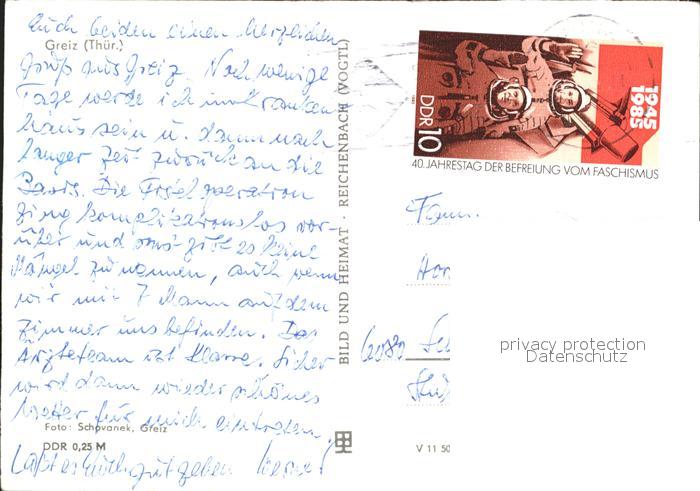 Euch beiden einen herzlichen
Greiz (Thür.)
Gruß aus Greiz. Noch wenige
Tage werde ich im Kranken-
haus sein u. dann nach
langer Zeit zurück an die
Basis. Die operation
ging komplikationslos vor-
über und sonst gibt es keine
Mängel zu nennen, auch wenn
wir mit 7 Mann auf dem
Zimmer uns befinden. Das
Ärzteteam ist Klasse. Sicher
wird dann wieder schönes
Wetter für mich eintreten.
Foto: Schovanek, Greiz
DDR 0,25 M
Laßt es Euch gut gehen
BILD UND HEIMAT · REICHENBACH (VOGTL)
V 11 50
DDR 10
1945
1985
40. JAHRESTAG DER BEFREIUNG VOM FASCHISMUS
Fam.
Hor
6080
privacy protection
Datenschutz